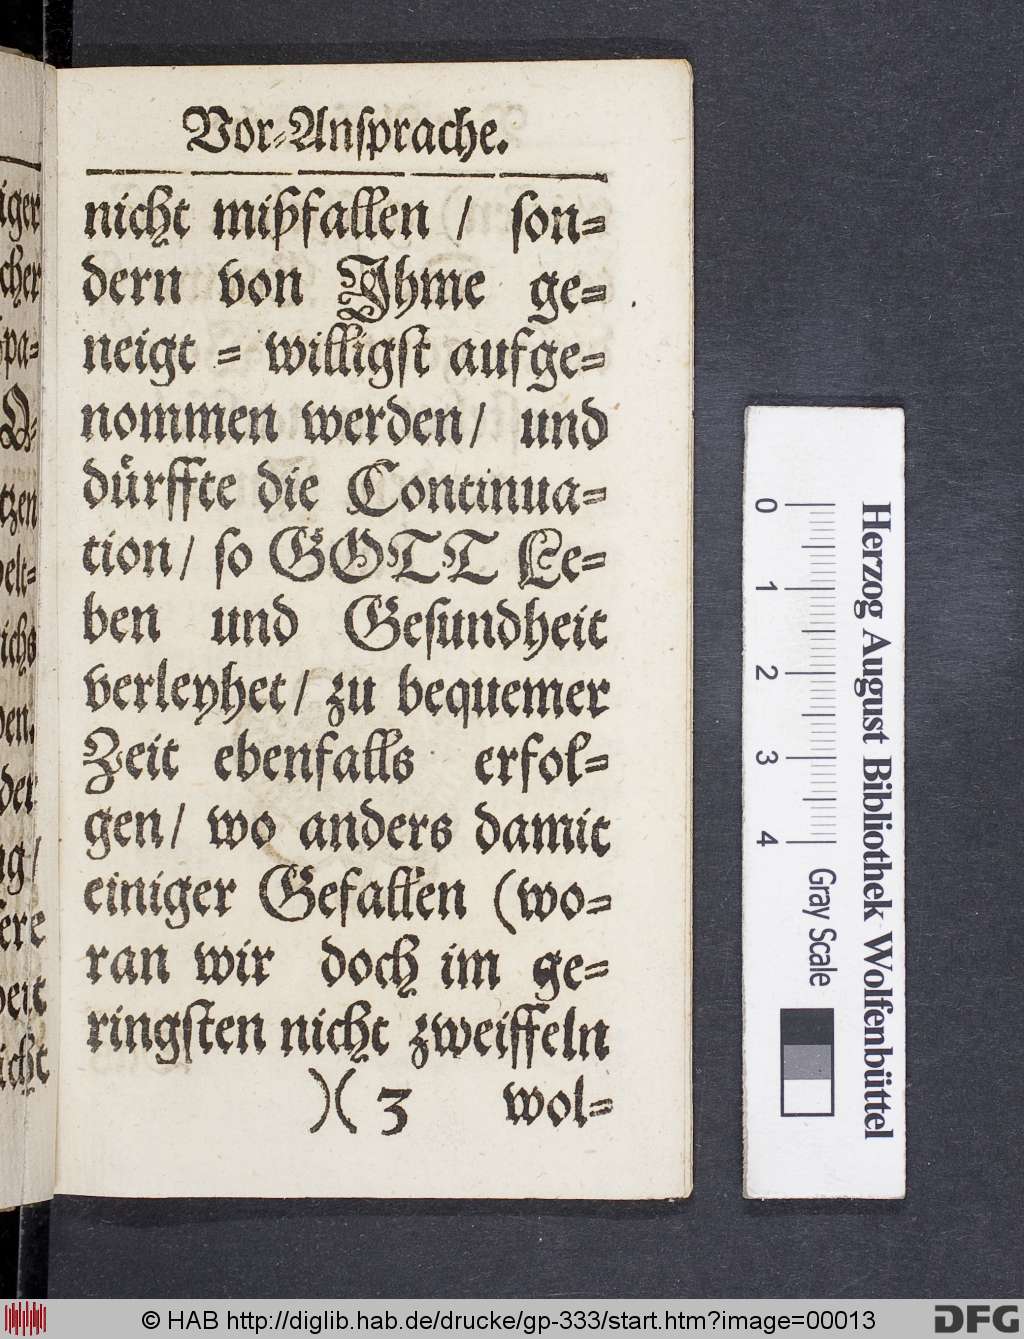 Vor-Ansprache.
nicht mißfallen / son-
dern von Ihme ge-
neigt = willigst aufge-
nommen werden/ und
dürffte die Continua-
tion/ so GOTT Le-
ben und Gesundheit
verleyhet/ zu bequemer
Zeit ebenfalls erfol-
gen/ wo anders damit
einiger Gefallen (wo-
ran wir doch im ge-
ringsten nicht zweiffeln
)( 3 wol-
0 1 2 3 4
Gray Scale
Herzog August Bibliothek Wolfenbüttel
© HAB http://diglib.hab.de/drucke/gp-333/start.htm?image=00013
DFG